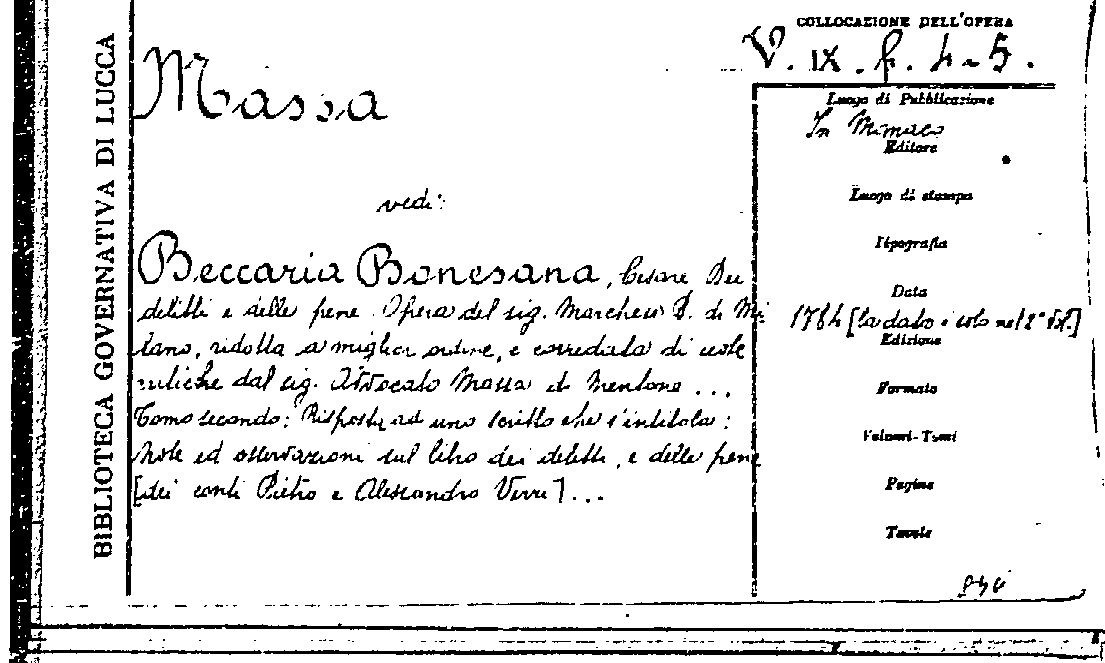 BIBLIOTECA GOVERNATIVA DI LUCCA
COLLOCAZIONE DELL'OPERA
V. IX. f. 4-5.
Massa
Luogo di Pubblicazione
In Monaco
Editore
Luogo di stampa
Tipografia
Data
1784 [la data è solo nel 2° vol.]
Edizione
Formato
Volumi-Tomi
Pagine
Tavole
vedi:
Beccaria Bonesana, Cesare Dei
delitti e delle pene. Opera del sig. Marchese B. di Mi
lano, ridotta a miglior ordine, e corredata di note
critiche dal sig. Avvocato Massa di Mentone ...
Tomo secondo: Risposta ad uno scritto che s'intitola:
Note ed osservazioni sul libro dei delitti, e delle pene
[dei conti Pietro e Alessandro Verri] ...